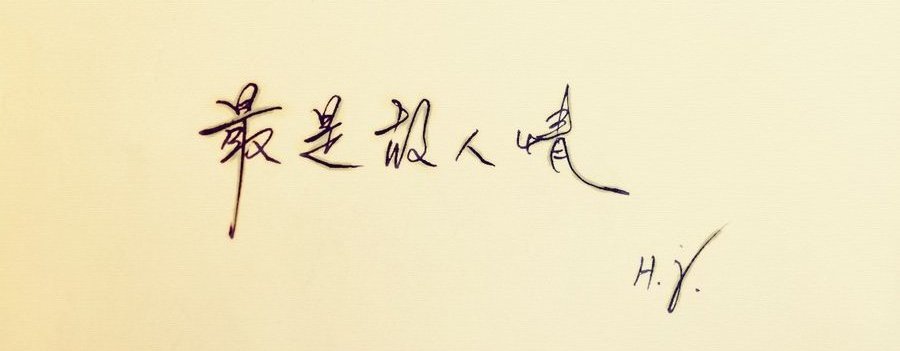 最是故人情
H.γ.